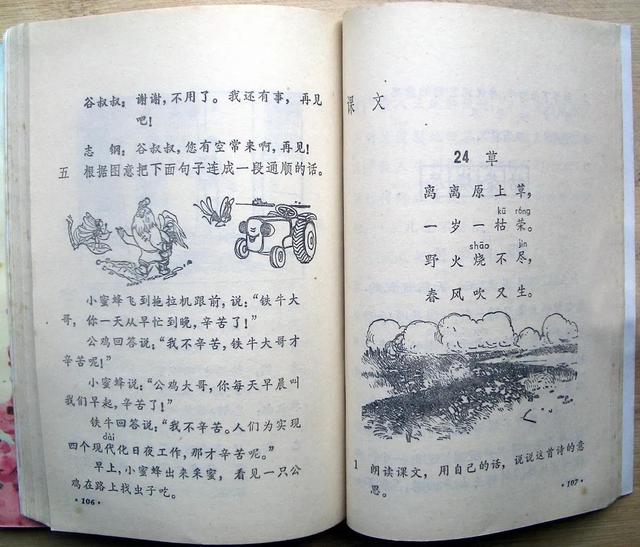 谷叔叔：谢谢，不用了。我还有事，再见
吧！
志 钢：谷叔叔，您有空常来啊，再见！
五 根据图意把下面句子连成一段通顺的话。
小蜜蜂飞到拖拉机跟前，说：“铁牛大
哥，你一天从早忙到晚，辛苦了！”
公鸡回答说：“我不辛苦，铁牛大哥才
辛苦呢！”
小蜜蜂说：“公鸡大哥，你每天早晨叫
我们早起，辛苦了！”
铁牛回答说：“我不辛苦。人们为实现
dài
四个现代化日夜工作，那才辛苦呢。”
早上，小蜜蜂出来采蜜，看见一只公
鸡在路上找虫子吃。
·106·
课 文
24 草
离离原上草，
kū róng
一岁一枯荣。
shāo jìn
野火烧不尽，
春风吹又生。
1 朗读课文，用自己的话，说说这首诗的意
思。
·107·